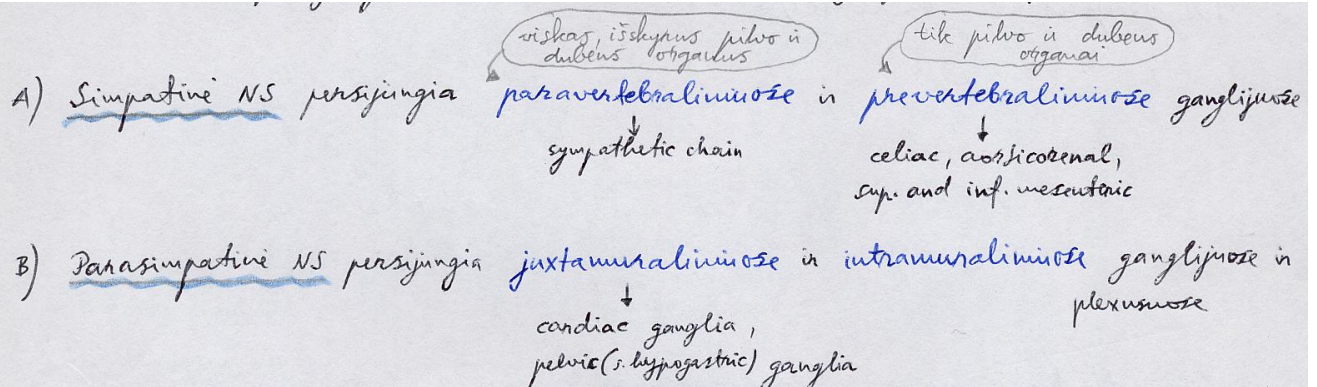 viskas, išskyrus pilvo ir
dubens organus
tik pilvo ir dubens
organai
A) Simpatinė NS persijungia paravertebraliniuose ir prevertebraliniuose ganglijuose
sympathetic chain
celiac, aorticorenal,
sup. and inf. mesenteric
B) Parasimpatinė NS persijungia juxtamuraliniuose ir intramuraliniuose ganglijuose ir
plexusuose
cardiac ganglia,
pelvic (s. hypogastric) ganglia